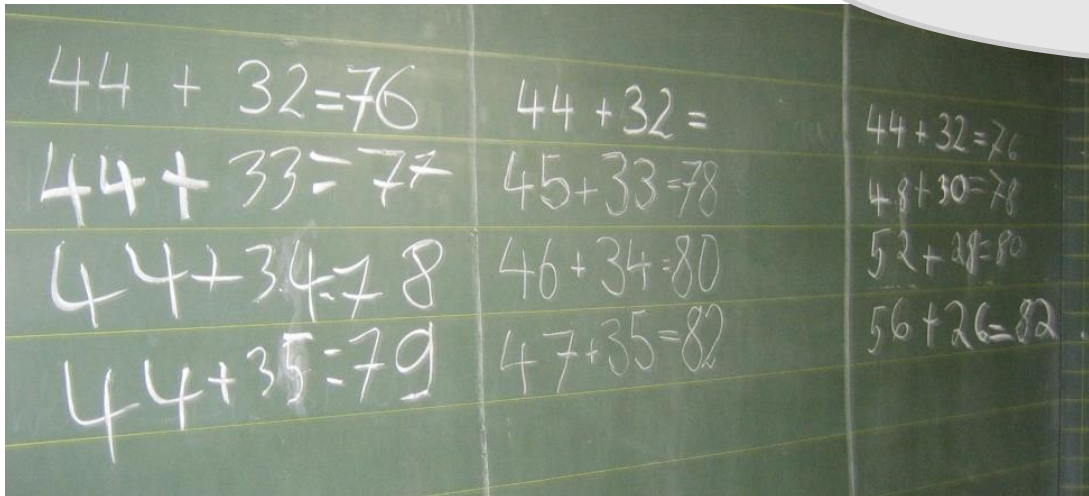 44 + 32=76
44+ 33= 77
44+34=78
44+35=79
44+32=
45+33=78
46+34=80
47+35=82
44+32=76
48+30=78
52+28=80
56+26=82